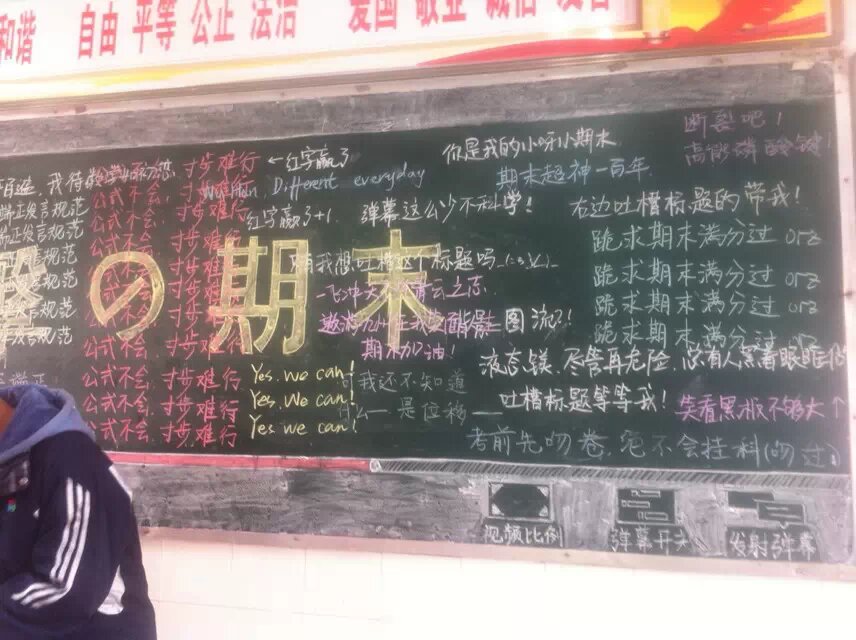 和谐 自由 平等 公正 法治 爱国 敬业 诚信 友善
断裂吧！
高能磷酸键！
你是我的小呀小期末
公式不会,寸步难行 ←红字赢了
期末超神一百年
Different everyday
公式不会,寸步难行
红字赢了+1. 弹幕这么少不科学!
右边吐槽标题的带我!
端正发言规范
公式不会,寸步难行
跪求期末满分过 orz
端正发言规范
公式不会,寸步难行
我想吐槽这个标题吗
跪求期末满分过 orz
の期末
公式不会,寸步难行
一飞冲天 青云之志
跪求期末满分过 orz
发言规范
公式不会,寸步难行
图流?!
跪求期末满分过 orz
期末加油!
公式不会,寸步难行
Yes. we can!
我还不知道
液态镁,尽管再危险,总有人黑着眼眶
公式不会,寸步难行
Yes. we can!
什么 是位移
吐槽标题等等我!
笑看黑板不够大↑
公式不会,寸步难行
Yes we can!
考前先吻卷,绝不会挂科(吻过)
视频比例
弹幕开关
发射弹幕